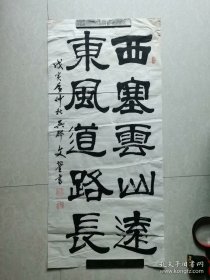 西塞雲山遠
東風道路長
戊寅